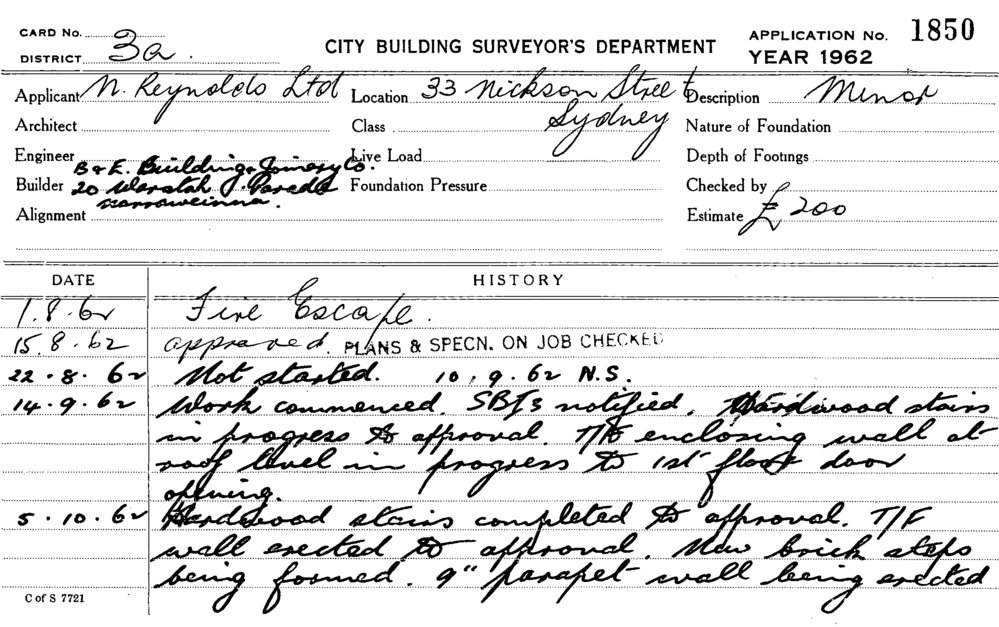 CARD No.
DISTRICT 3a.
CITY BUILDING SURVEYOR'S DEPARTMENT
APPLICATION No. 1850
YEAR 1962
Applicant N. Reynolds Ltd Location 33 Nickson Street Description Minor
Architect Class Sydney Nature of Foundation
Engineer B & E. Building & Joinery Co. Live Load Depth of Footings
Builder 20 Waratah Parade Foundation Pressure Checked by
Narraweinna.
Alignment Estimate £200
DATE HISTORY
1.8.62 Fire Escape.
15.8.62 approved. PLANS & SPECN. ON JOB CHECKED
22.8.62 Not started. 10.9.62 N.S.
14.9.62 Work commenced. notified. Hardwood stairs
in progress to approval. T/F enclosing wall at
roof level in progress to 1st floor door
opening.
5.10.62 Hardwood stairs completed to approval. T/F
wall erected to approval. New brick steps
being formed. 9" parapet wall being erected
C of S 7721